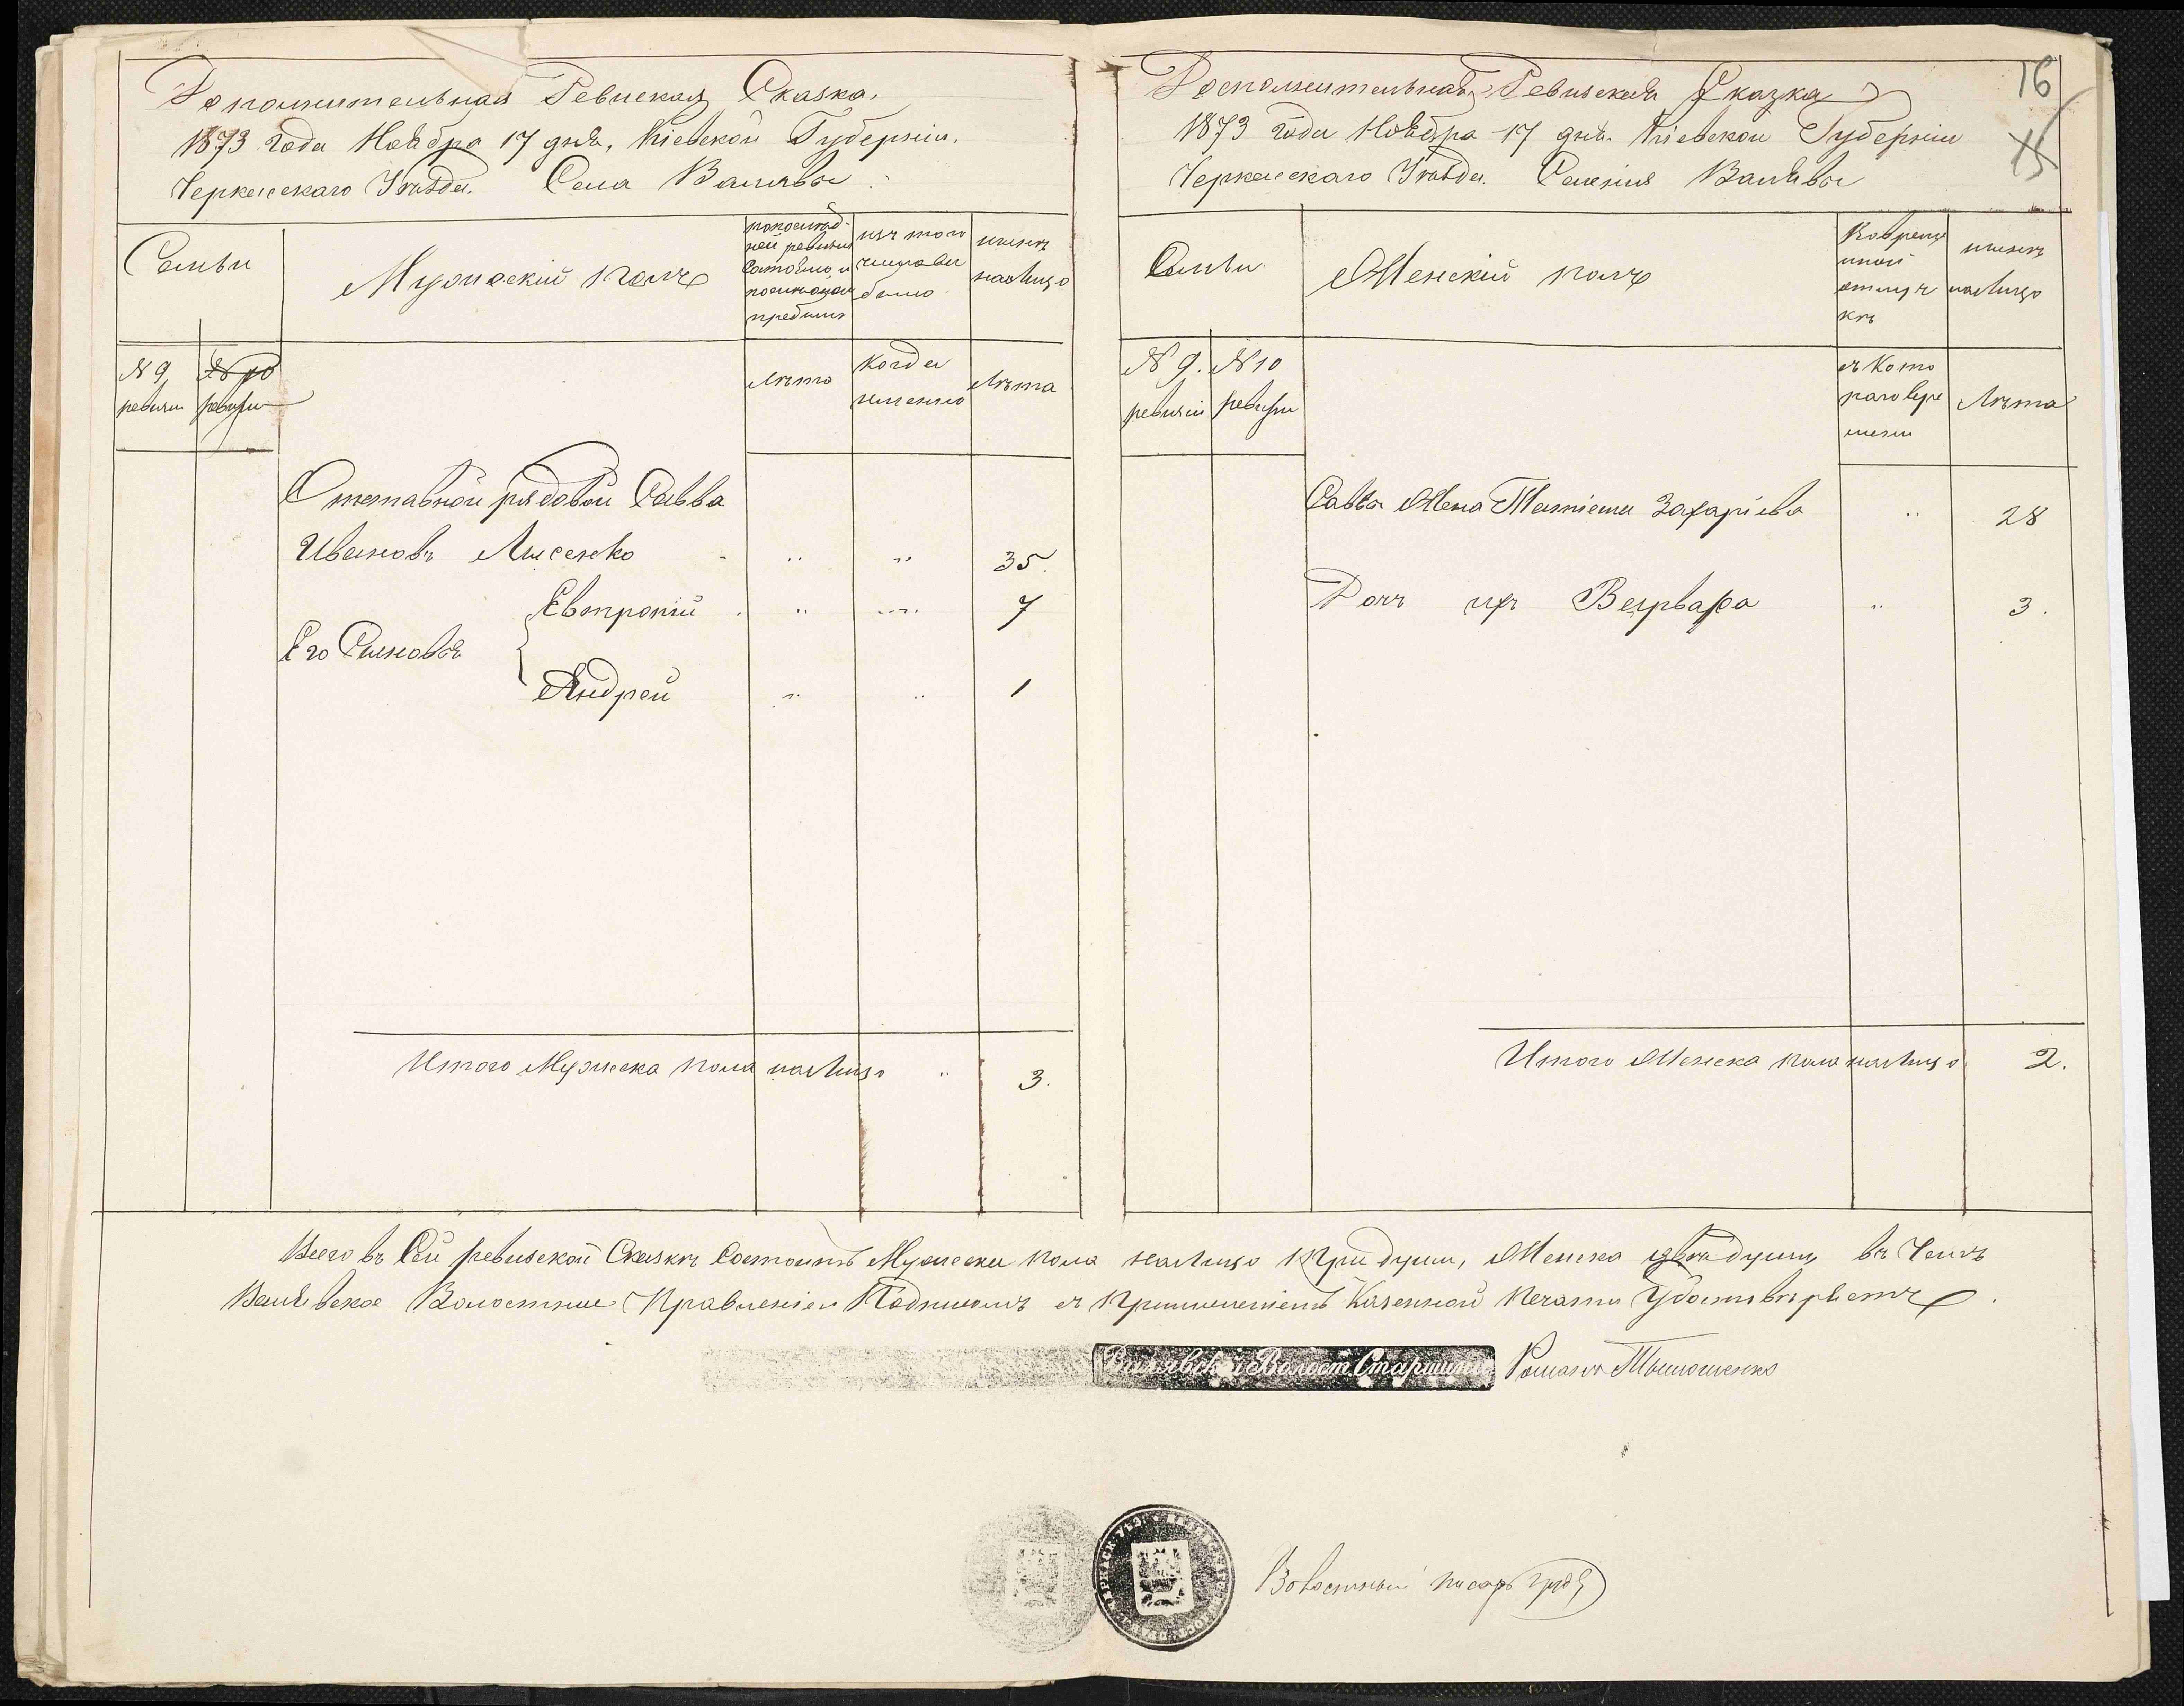 Дополнительная Ревиская Сказка.
1873 года Ноября 17 дня, Кіевской Губерніи.
Черкасскаго Уѣзда. Села Валявы
Семьи
Мужескій полъ
по послѣд-
ней ревизіи
состояло и
после оной
прибыло
изъ того
числа вы
было
нынѣ
налицо
№ 9
ревизіи
№ 10
ревизіи
Лѣта
Когда
именно
Лѣта
Отставной рядовой Савва
Ивановъ Лисенко 35.
Евтропій 7
Его Сыновья
Андрей 1
Итого Мужеска пола налицо 3.
16
15
Дополнительная Ревиская Сказка
1873 года Ноября 17 дня. Кіевской Губерніи
Черкасскаго Уѣзда. Селенія Валявы
Семьи
Женскій полъ
Во време
нной
отлуч
кѣ
нынѣ
налицо
№ 9.
ревизіи
№ 10
ревизіи
съ кото
раго вре
мени
Лѣта
Саввы Жена Татіана Захаріева 28
Дочь ихъ Варвара 3.
Итого Женска пола налицо 2.
Всего въ Сей ревиской Сказкѣ Состоитъ Мужеска пола налицо три души, Женска двѣ души, въ Чемъ
Валявское Волостное Правленіе Подписомъ съ Приложеніемъ Казенной Печати Удостовѣряетъ.
Валявскій Волост. Старшина Романъ Тымошенко
Волостный писарь